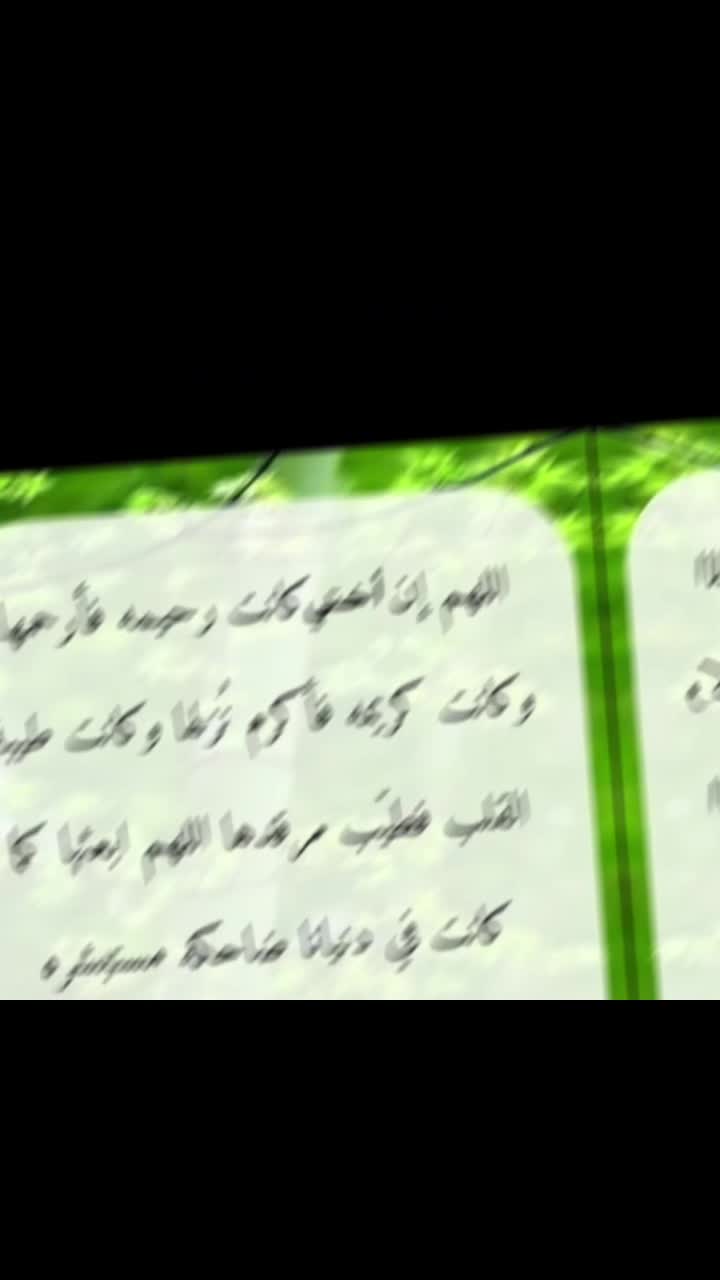 اللهم إن أختي كانت وحيده فأرحمها
وكانت كريمه فأكرم نُزلها وكانت طيبة
القلب فطيّب مرقدها اللهم ابعثها كما
كانت في دنيانا ضاحكة مستبشره